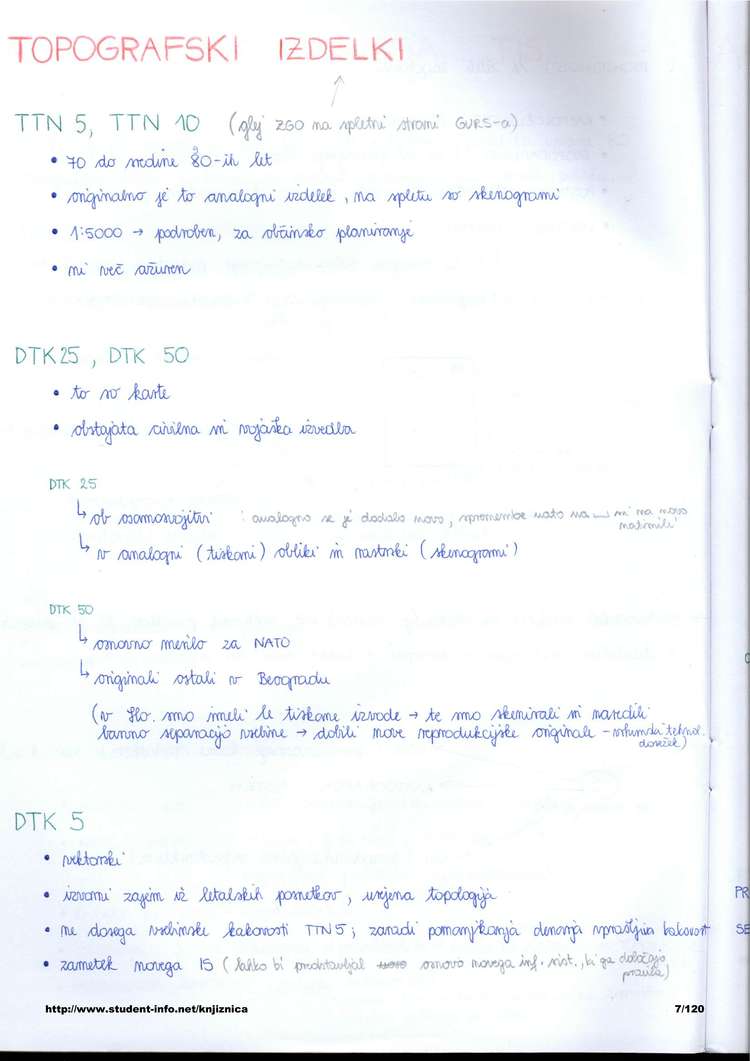 TOPOGRAFSKI IZDELKI
TTN 5, TTN 10 (glej ZGO na spletni strani GURS-a)
• 70 do sredine 80-ih let
• originalno je to analogni izdelek, na spletu so skenogrami
• 1:5000 → podroben, za občinsko planiranje
• ni več ažuren
DTK25, DTK 50
• to so karte
• obstajata civilna in vojaška izvedba
DTK 25
↳ ob osamosvojitvi : analogno se je dodalo novo, spremembe nato na in na novo
natisnili
↳ v analogni (tiskani) obliki in rastrski (skenogrami)
DTK 50
↳ osnovno merilo za NATO
↳ originali ostali v Beogradu
(v Slo. smo imeli le tiskane izvode → te smo skenirali in naredili
barvno separacijo vsebine → dobili nove reprodukcijske originale - vrhunski tehnol.
dosežek)
DTK 5
• vektorski
• izvorni zajem iz letalskih posnetkov, urejena topologija
• ne dosega vsebinske kakovosti TTN5; zaradi pomanjkanja denarja vprašljiva kakovost
• zametek novega IS (lahko bi predstavljal osnovo novega inf. sist., ki ga določajo
pravila)
PR
SE
http://www.student-info.net/knjiznica 7/120